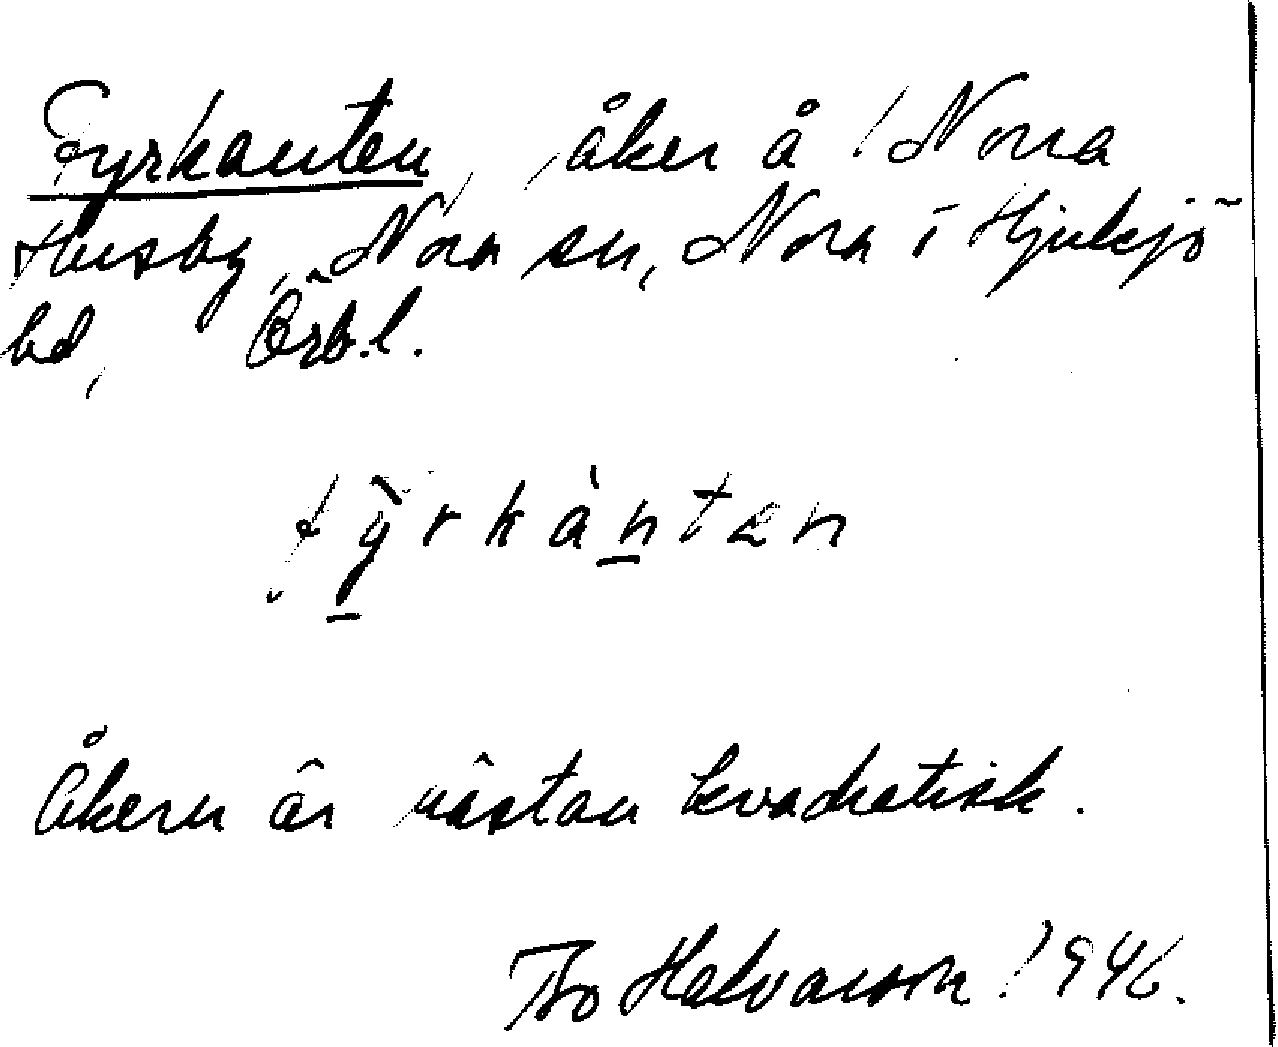 Fyrkanten, åker å Norra
Husby, Nora sn, Nora i Hjulsjö
bd, Örb.l.
fỳ̠rkàn̠ten
Åkern är nästan kvadratisk.
Bo Halvarson 1946.